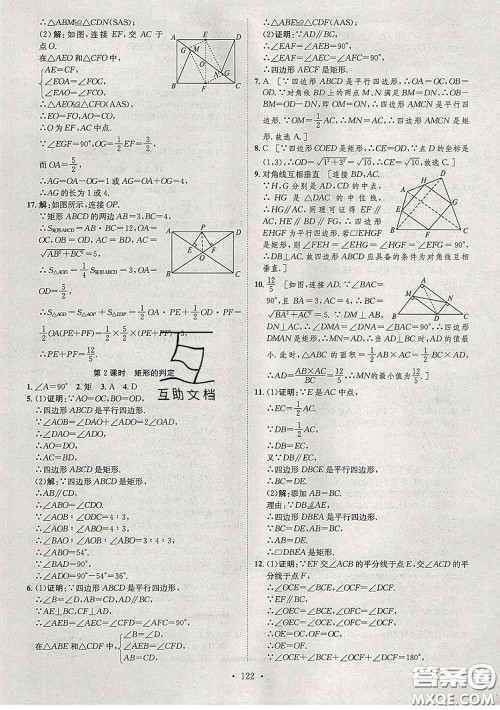 ∴△ABM≌△CDN(SAS);
(2)解:如图,连接 EF,交 AC 于
点O.
在△AEO 和△CFO 中,
AE=CF,
∠EOA=∠FOC,
∠EAO=∠FCO,
∴△AEO≌△CFO(AAS),
∴EO=FO,AO=CO,
∴O 为 EF、AC 中点.
∵∠EGF=90°,OG=1/2 EF=3/2,
而 OA=5/2,
∴AG=OA-OG=1 或 AG=OA+OG=4,
∴AG 的长为 1 或 4.
17.解:如图所示,连接OP.
∵矩形 ABCD 的两边AB=3,BC=4,
∴S矩形ABCD=AB·BC=12,OA=
OC,OB=OD,AC=BD,AC=
√AB²+BC²=5,
∴S△AOD=1/4 S矩形ABCD=3,OA=OD
=5/2,
∴S△AOD=S△AOP+S△DOP=1/2 OA·PE+1/2 OD·PF=
1/2 OA(PE+PF)=1/2×5/2(PE+PF)=3,
∴PE+PF=12/5.
第 2 课时 矩形的判定
1.∠A=90° 2.矩 3.A 4.D
5.(1)证明:∵AO=OC,BO=OD,
∴四边形 ABCD 是平行四边形,
∵∠AOB=∠DAO+∠ADO=2∠OAD,
∴∠DAO=∠ADO,
∴AO=DO,
∴AC=BD,
∴四边形 ABCD 是矩形.
(2)解:∵四边形 ABCD 是矩形,
∴AB∥CD,
∴∠ABO=∠CDO.
∵∠AOB:∠ODC=4:3,
∴∠AOB:∠ABO=4:3,
∴∠BAO:∠AOB:∠ABO=3:4:3,
∴∠ABO=54°.
∵∠BAD=90°,
∴∠ADO=90°-54°=36°.
6.(1)证明:∵四边形 ABCD 是平行四边形,
∴∠B=∠D,AB=CD,AD∥BC,
∵AE⊥BC,CF⊥AD,
∴∠AEB=∠AEC=∠CFD=∠AFC=90°,
在△ABE 和△CDF 中,
∠B=∠D,
∠AEB=∠CFD,
AB=CD,
∴△ABE≌△CDF(AAS);
(2)证明:∵AD∥BC,
∴∠EAF=∠AEB=90°,
∴∠EAF=∠AEC=∠AFC=90°,
∴四边形 AECF是矩形.
7.A [∵四边形 ABCD 是平行四边形,∴OA=OC,OB=
OD.∵对角线BD 上的两点M、N满足BM=DN,∴OB
-BM=OD-DN,即 OM=ON,∴四边形 AMCN 是平
行四边形.∵OM=1/2 AC,∴MN=AC,∴四边形AMCN
是矩形.故选 A.]
8.C [∵四边形 COED 是矩形,∴CE=OD.∵点 D 的坐标是
(1,3),∴OD=√1²+3²=√10,∴CE=√10,故选 C.]
9.对角线互相垂直 [连接 BD,AC.
∵H,G 分别是 AD,CD 的中点,
∴HG 是△DAC 的中位线,
∴HG∥AC,同理可证得 EF∥
AC,HE∥BD∥FG,∴四边形
EHGF 为平行四边形.若▱EHGF
是矩形,则∠FEH=∠EHG=∠HGF=∠EFG=90°,
∴BD⊥AC,故四边形ABCD 应具备的条件为对角线互相
垂直.]
10.12/5 [如图,连接 AD.∵∠BAC=
90°,且 BA=3,AC=4,∴BC=
√BA²+AC²=5.∵DM⊥AB,DN⊥
AC,∴∠DMA=∠DNA=∠BAC=90°,∴四边形
DMAN 是矩形,∴MN=AD,∴当 AD⊥BC 时,AD 的
值最小,此时,△ABC 的面积=1/2 AB×AC=1/2 BC×
AD,∴AD=AB×AC/BC=12/5,∴MN的最小值为12/5.]
11.(1)证明:∵E 是AC 中点,
∴EC=1/2 AC.
∵DB=1/2 AC,
∴DB=EC.
又∵DB∥EC,
∴四边形 DBCE 是平行四边形,
∴BC=DE.
(2)解:添加 AB=BC.
理由:∵DB⫽AE,
∴四边形 DBEA 是平行四边形.
∵BC=DE,AB=BC,
∴AB=DE.
∴▱DBEA 是矩形.
12.(1)证明:∵EF 交∠ACB 的平分线于点E,交∠ACD 的平
分线于点F,
∴∠OCE=∠BCE,∠OCF=∠DCF.
∵EF∥BC,
∴∠OEC=∠BCE,∠OFC=∠DCF,
∴∠OEC=∠OCE,∠OFC=∠OCF,
∴OE=OC,OF=OC,
∴OE=OF.
∵∠OCE+∠BCE+∠OCF+∠DCF=180°,
互助文档
· 122 ·
答案圈
MXQE.COM